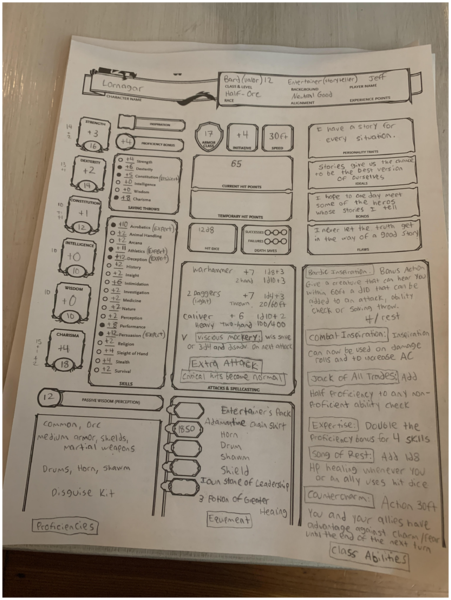 Lornagar
CHARACTER NAME
Bard (valor) 12
CLASS & LEVEL
Entertainer (storyteller)
BACKGROUND
Jeff
PLAYER NAME
Half-Orc
RACE
Neutral Good
ALIGNMENT
EXPERIENCE POINTS
STRENGTH
+3
16
DEXTERITY
+2
14
CONSTITUTION
+1
12
INTELLIGENCE
+0
10
WISDOM
+0
10
CHARISMA
+4
18
INSPIRATION
+4
PROFICIENCY BONUS
Strength
Dexterity
Constitution
Intelligence
Wisdom
Charisma
SAVING THROWS
Acrobatics (Expert)
Animal Handling
Arcana
Athletics (Expert)
Deception (Expert)
History
Insight
Intimidation
Investigation
Medicine
Nature
Perception
Performance
Persuasion (Expert)
Religion
Sleight of Hand
Stealth
Survival
SKILLS
12
PASSIVE WISDOM (PERCEPTION)
Common, Orc
Medium armor, shields,
martial weapons
Drums, Horn, Shawm
Disguise Kit
Proficiencies
17
ARMOR CLASS
+4
INITIATIVE
30ft
SPEED
CURRENT HIT POINTS
TEMPORARY HIT POINTS
12d8
HIT DICE
SUCCESSES
FAILURES
DEATH SAVES
Warhammer +7 1d8+3
2 Daggers +7
(light) thrown 20/60ft
+6 1d10+2
heavy two-hand 100/400
vicious mockery
or 3d4 and disadv on next attack
Extra Attack
critical hits become normal
ATTACKS & SPELLCASTING
Entertainer's Pack
Adamantine chain shirt
Horn
Drum
Shawm
Shield
Ioun stone of Leadership
Potion of Greater
Healing
Equipment
I have a story for
every situation.
PERSONALITY TRAITS
Stories give us the chance
to be the best version
of ourselves
IDEALS
I hope to one day meet
some of the heroes
whose stories I tell
BONDS
I never let the truth get
in the way of a good story
FLAWS
Bardic Inspiration: Bonus Action
added to an attack, ability
check or saving throw
4/rest
Combat Inspiration: Inspiration
can now be used on damage
rolls and to increase AC
Jack of All Trades: Add
half proficiency to any non-
proficient ability check
Expertise: Double the
proficiency bonus for 4 skills
Song of Rest: Add
HP healing whenever you
or an ally uses hit dice
Countercharm: Action 30ft
You and your allies have
advantage against charm/fear
until the end of the next turn
Class Abilities